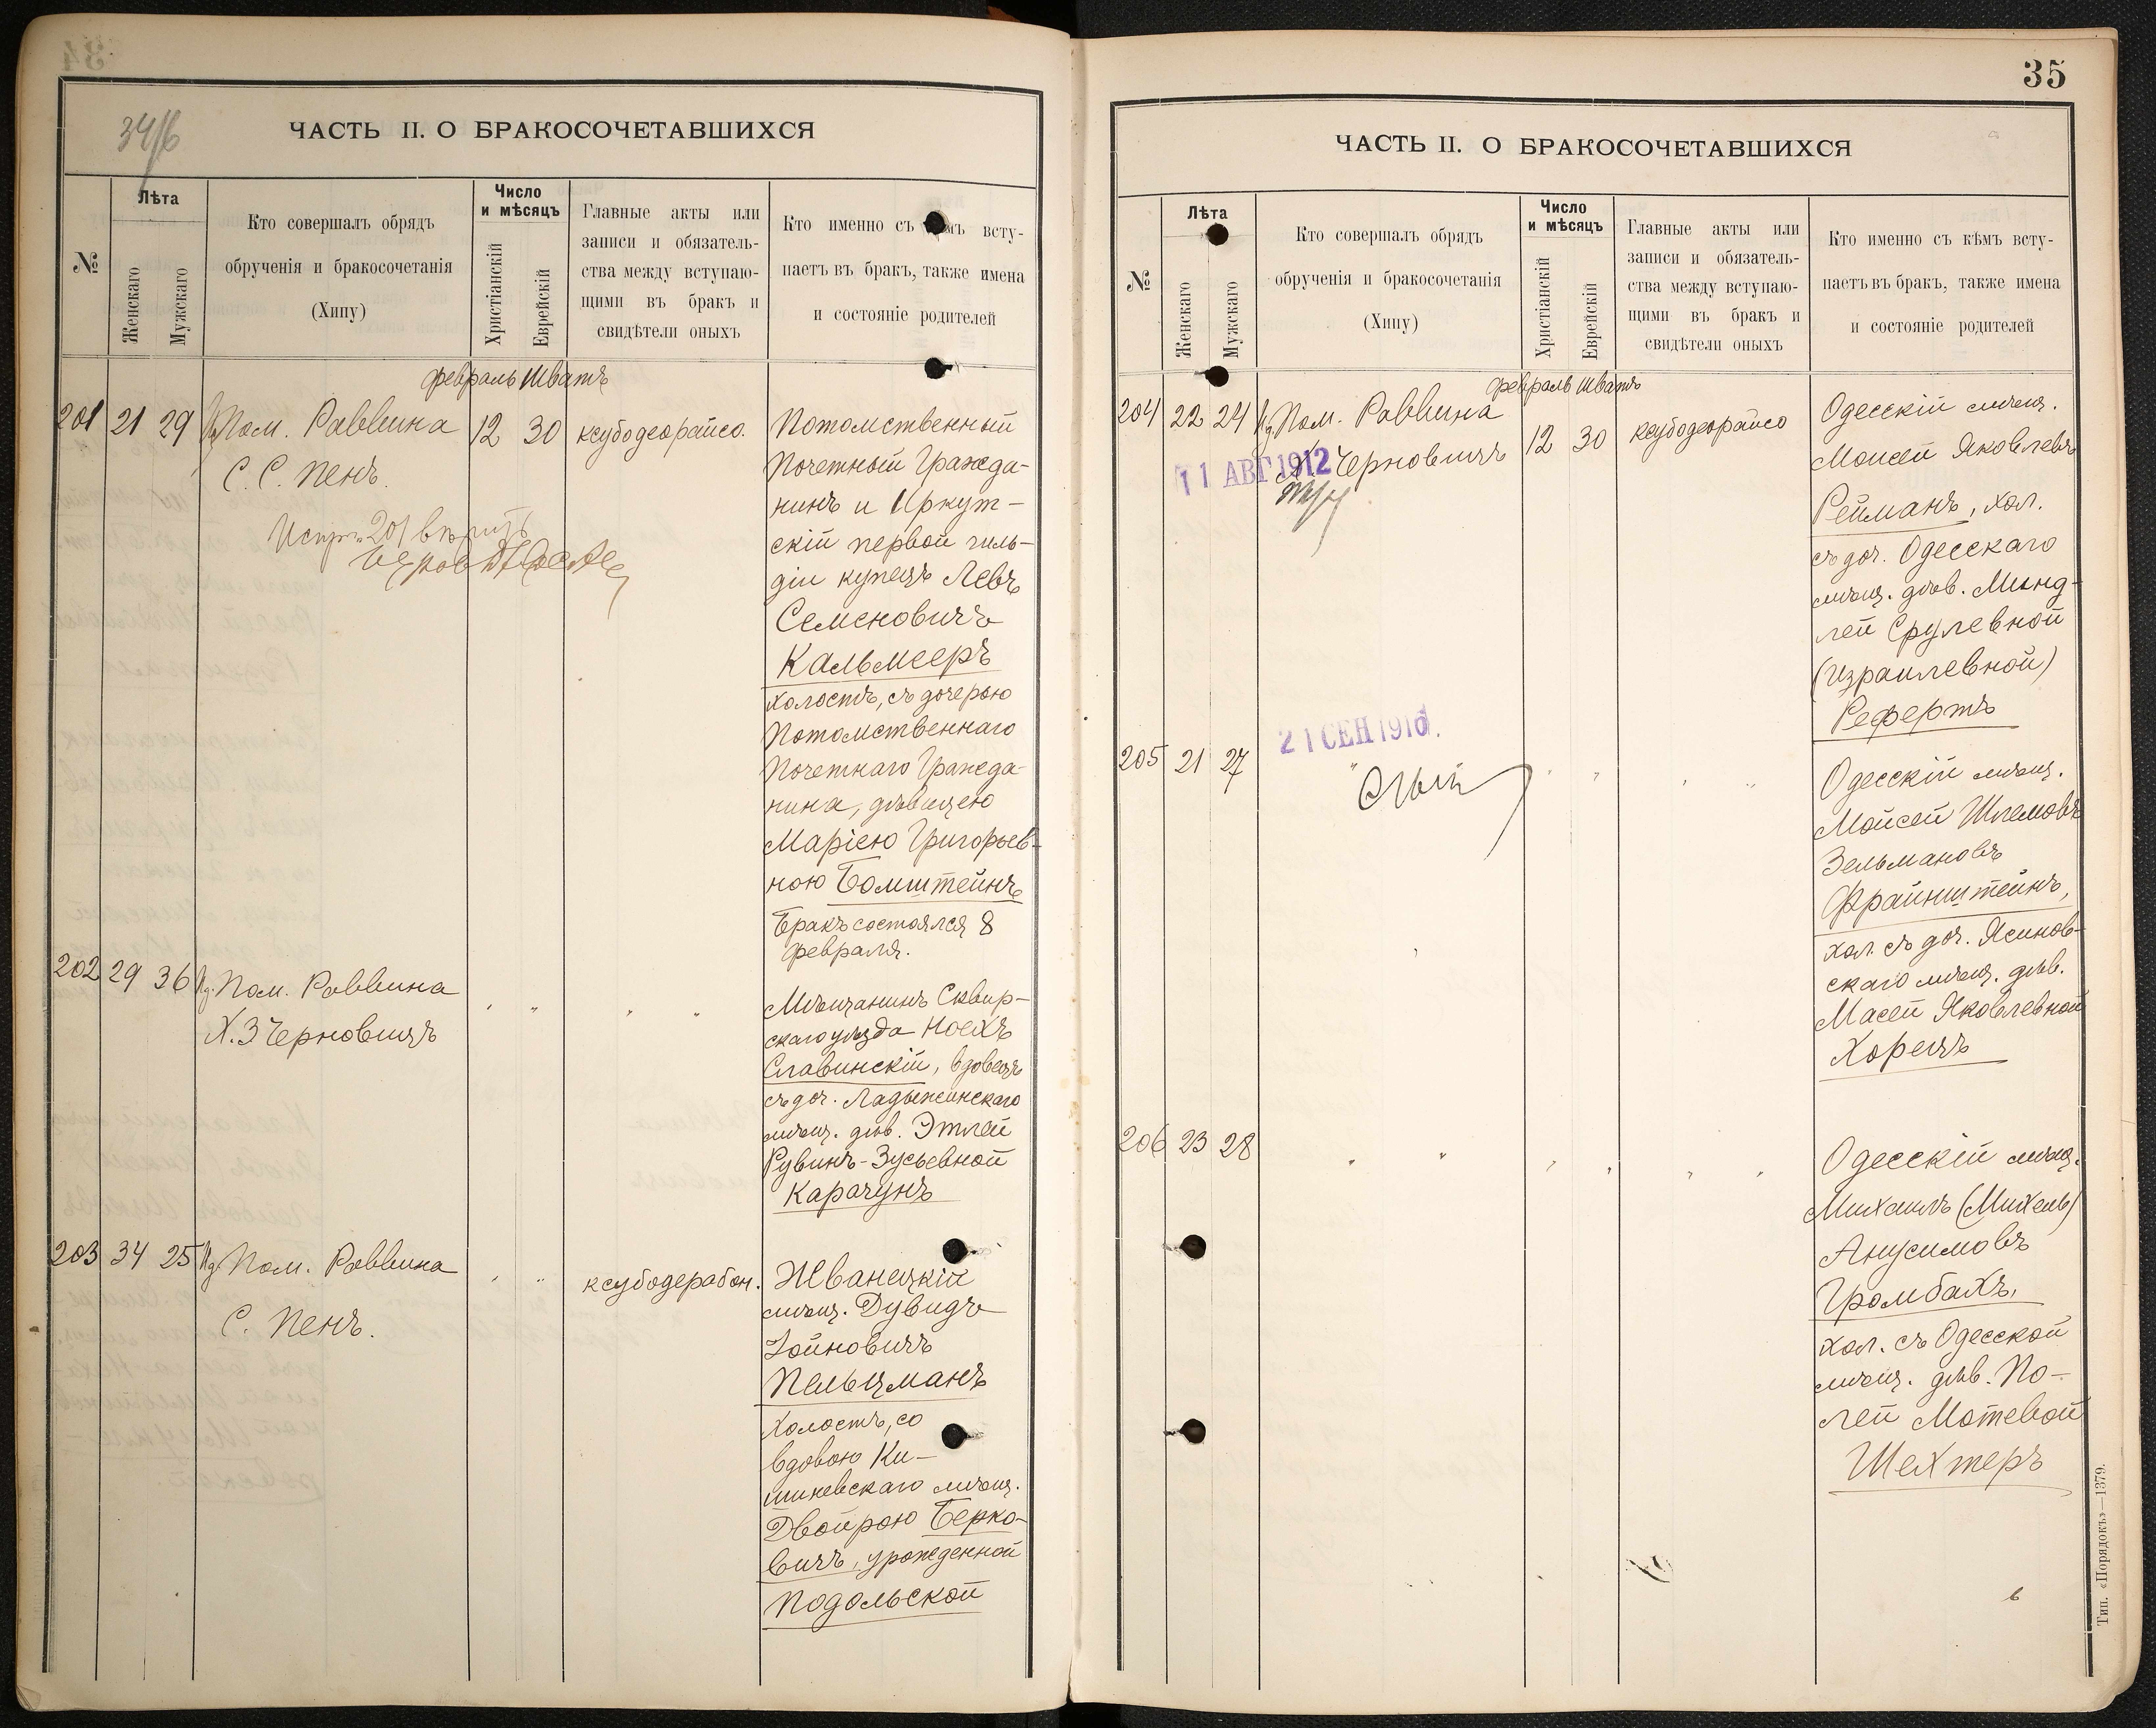 34
34/б
ЧАСТЬ II. О БРАКОСОЧЕТАВШИХСЯ
№
Лѣта
Женскаго
Мужскаго
Кто совершалъ обрядъ
обрученія и бракосочетанія
(Хипу)
Число
и мѣсяцъ
Христіанскій
Еврейскій
Главные акты или
записи и обязатель-
ства между вступаю-
щими въ бракъ и
свидѣтели оныхъ
Кто именно съ всту-
паетъ въ бракъ, также имена
и состояніе родителей
февраль Шватъ
201 21 29 Пом. Раввина 12 30 ксубодеорайсо.
С. С. Пенъ.
Потомственный
Почетный Гражда-
нинъ и Иркут-
скій первой гиль-
діи купецъ Левъ
Семеновичъ
Кальмееръ
холостъ, съ дочерью
Потомственнаго
Почетнаго Гражда-
нина, дѣвицею
Маріею Григорьев-
ною Бомштейнъ
Бракъ состоялся 8
февраля.
202 29 36 Пом. Раввина " " " "
Х. З Черновицъ
Мѣщанинъ Сквир-
скаго уѣзда Ноехъ
Славинскій, вдовецъ
съ доч. Ладыжинскаго
мѣщ. дѣв. Этлей
Рувинъ-Зусьевной
Карачунъ
203 34 25 Пом. Раввина " " ксубодерабон.
С. Пенъ.
Жванецкій
мѣщ. Дувидъ
Іойновичъ
Пельцманъ
холостъ, со
вдовою Ки-
шиневскаго мѣщ.
Двойрою Берко-
вичъ, урожденной
Подольской
35
ЧАСТЬ II. О БРАКОСОЧЕТАВШИХСЯ
№
Лѣта
Женскаго
Мужскаго
Кто совершалъ обрядъ
обрученія и бракосочетанія
(Хипу)
Число
и мѣсяцъ
Христіанскій
Еврейскій
Главные акты или
записи и обязатель-
ства между вступаю-
щими въ бракъ и
свидѣтели оныхъ
Кто именно съ кѣмъ всту-
паетъ въ бракъ, также имена
и состояніе родителей
февраль Шватъ
204 22 24 Пом. Раввина 12 30 ксубодеорайсо
Черновицъ
11 АВГ 1912
Одесскій мѣщ.
Моисей Яковлевъ
Рейманъ, хол.
съ доч. Одесскаго
мѣщ. дѣв. Минд-
лей Срулевной
(Израилевной)
Рефертъ
21 СЕН 1916
205 21 27 " " " " "
Одесскій мѣщ.
Мойсей Шлемовъ
Зельмановъ
Файнштейнъ,
хол. съ доч. Ясинов-
скаго мѣщ. дѣв.
Масей Яковлевной
Хорецъ
206 23 28 " " " " " "
Одесскій мѣщ.
Михаилъ (Михель)
Анусимовъ
Громбахъ,
хол. съ Одесской
мѣщ. дѣв. По-
лей Мотевой
Шехтеръ
Тип. «Порядокъ»—1379.